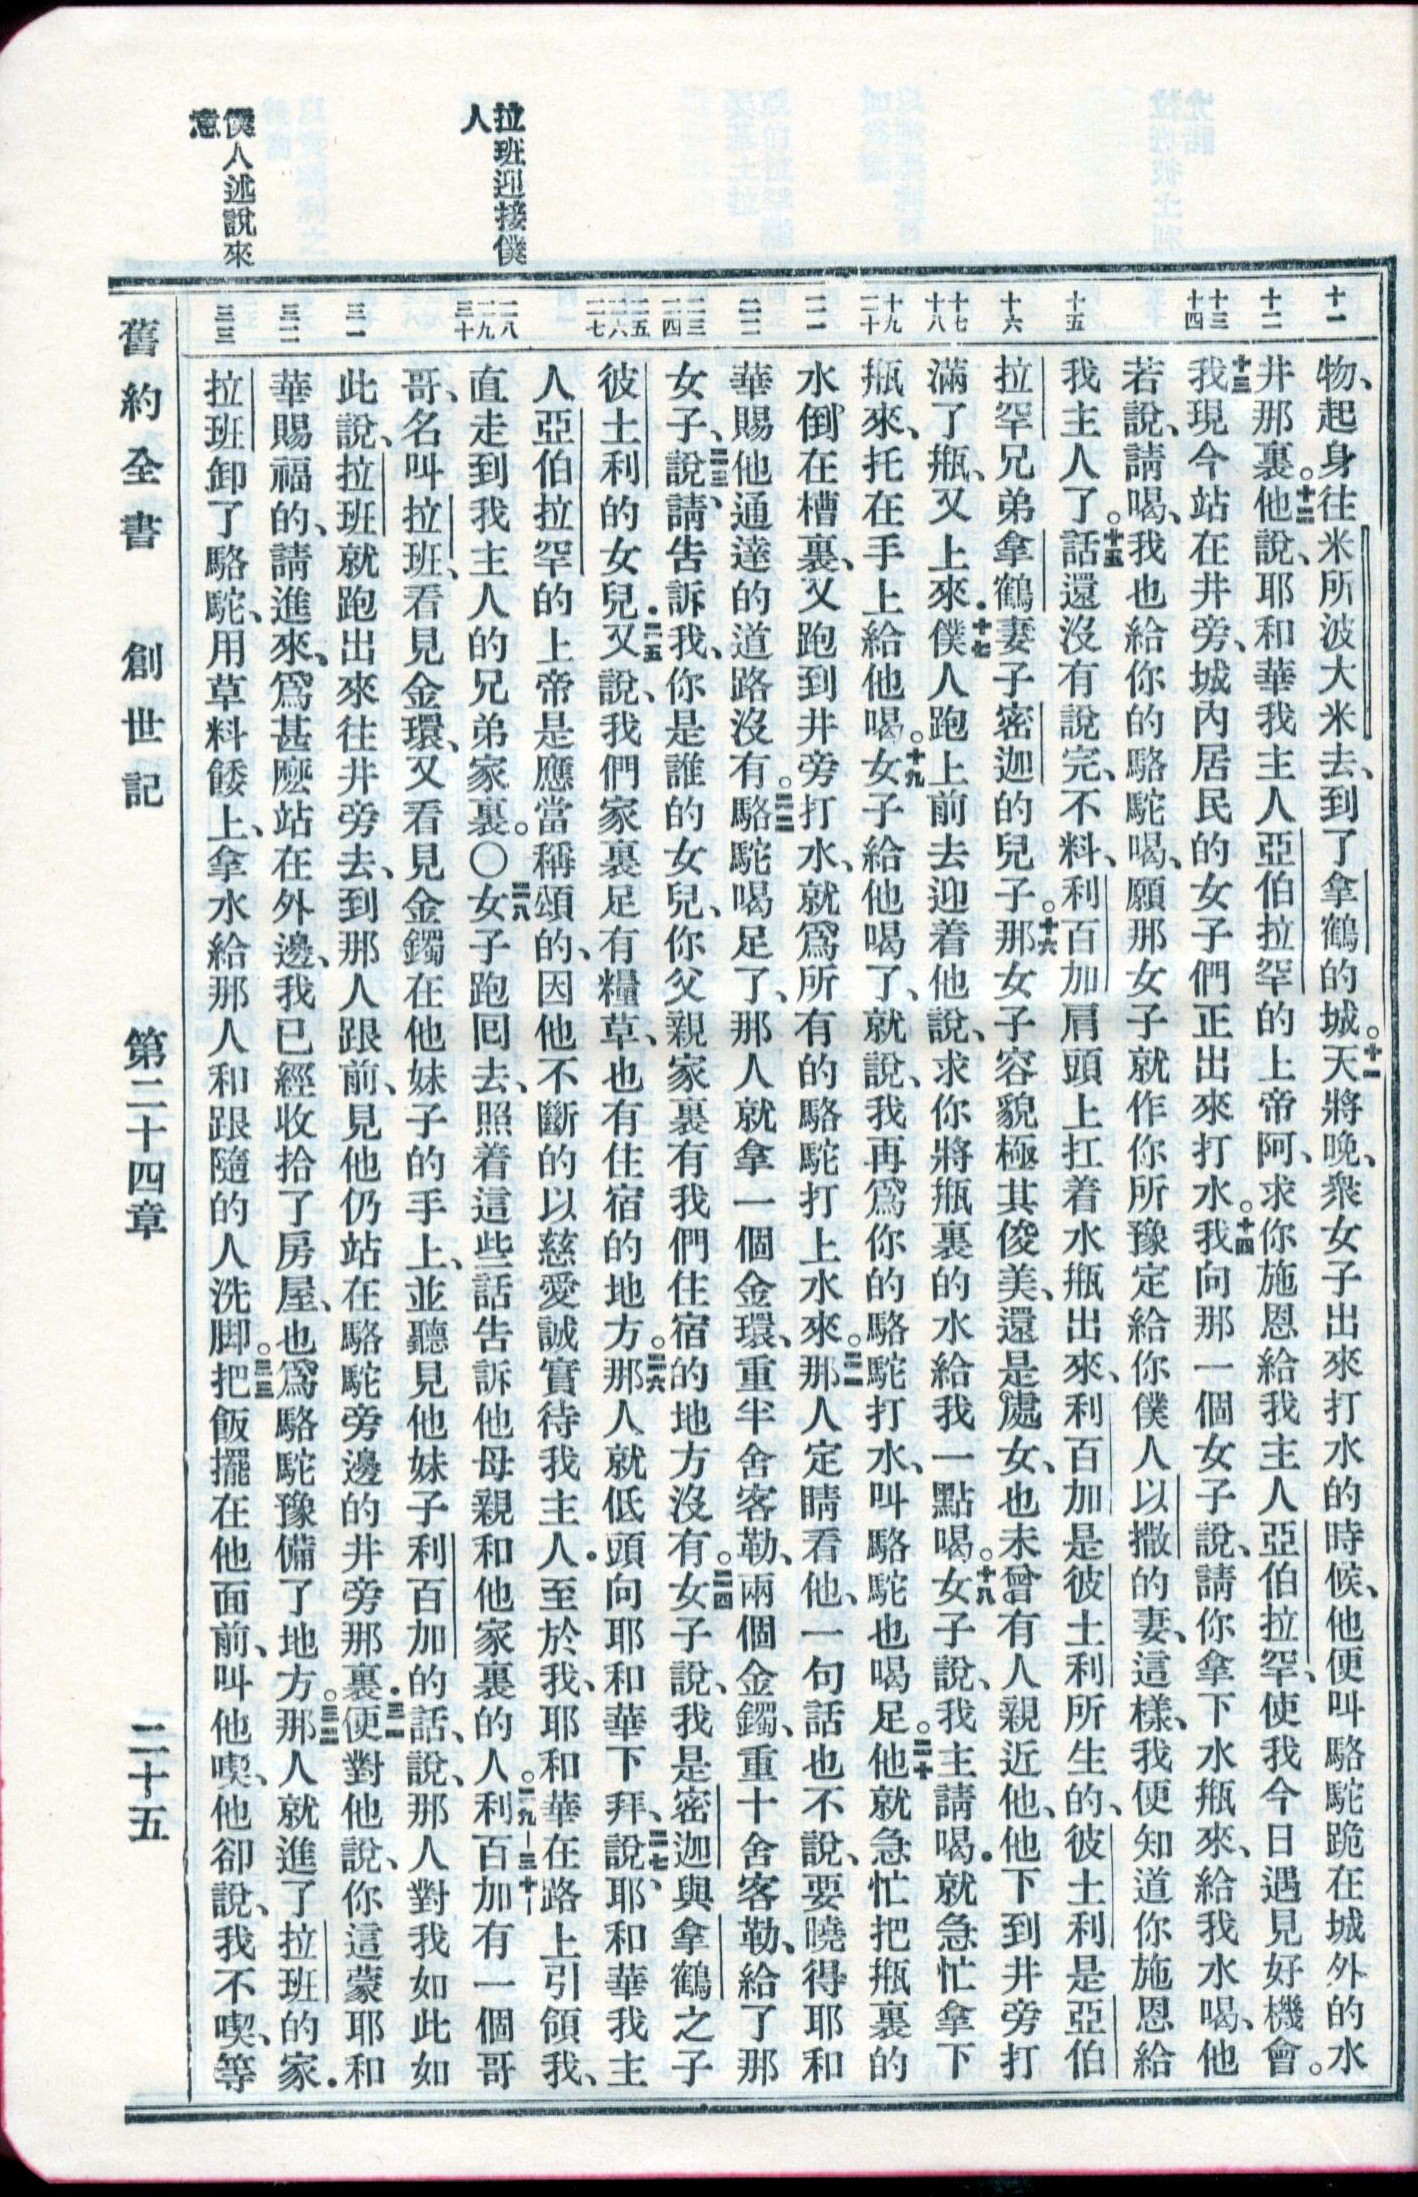 拉班迎接僕
人
僕人述說來
意
十一
十二
十三
十四
十五
十六
十七
十八
十九
二十
二一
二二
二三
二四
二五
二六
二七
二八
二九
三十
三一
三二
三三
物、起身往米所波大米去、到了拿鶴的城。十一天將晚、衆女子出來打水的時候、他便叫駱駝跪在城外的水
井那裏。十二他說、耶和華我主人亞伯拉罕的上帝阿、求你施恩給我主人亞伯拉罕、使我今日遇見好機會。
十三我現今站在井旁、城內居民的女子們正出來打水。十四我向那一個女子說、請你拿下水瓶來、給我水喝、他
若說、請喝、我也給你的駱駝喝、願那女子就作你所豫定給你僕人以撒的妻、這樣、我便知道你施恩給
我主人了。十五話還沒有說完、不料、利百加肩頭上扛着水瓶出來、利百加是彼土利所生的、彼土利是亞伯
拉罕兄弟拿鶴妻子密迦的兒子。十六那女子容貌極其俊美、還是處女、也未曾有人親近他、他下到井旁打
滿了瓶、又上來．十七僕人跑上前去迎着他說、求你將瓶裏的水給我一點喝。十八女子說、我主請喝．就急忙拿下
瓶來、托在手上給他喝。十九女子給他喝了、就說、我再爲你的駱駝打水、叫駱駝也喝足。二十他就急忙把瓶裏的
水倒在槽裏、又跑到井旁打水、就爲所有的駱駝打上水來。二一那人定睛看他、一句話也不說、要曉得耶和
華賜他通達的道路沒有。二二駱駝喝足了、那人就拿一個金環、重半舍客勒、兩個金鐲、重十舍客勒、給了那
女子、二三說、請告訴我、你是誰的女兒、你父親家裏有我們住宿的地方沒有。二四女子說、我是密迦與拿鶴之子
彼土利的女兒．二五又說、我們家裏足有糧草、也有住宿的地方。二六那人就低頭向耶和華下拜、二七說、耶和華我主
人亞伯拉罕的上帝是應當稱頌的、因他不斷的以慈愛誠實待我主人．至於我、耶和華在路上引領我、
直走到我主人的兄弟家裏。〇二八女子跑回去、照着這些話告訴他母親和他家裏的人。二九—三十利百加有一個哥
哥、名叫拉班、看見金環、又看見金鐲在他妹子的手上、並聽見他妹子利百加的話、說、那人對我如此如
此說、拉班就跑出來往井旁去、到那人跟前、見他仍站在駱駝旁邊的井旁那裏．三一便對他說、你這蒙耶和
華賜福的、請進來、爲甚麽站在外邊、我已經收拾了房屋、也爲駱駝豫備了地方。三二那人就進了拉班的家．
拉班卸了駱駝、用草料餧上、拿水給那人和跟隨的人洗脚。三三把飯擺在他面前、叫他喫、他卻說、我不喫、等
舊約全書　創世記　第二十四章　二十五